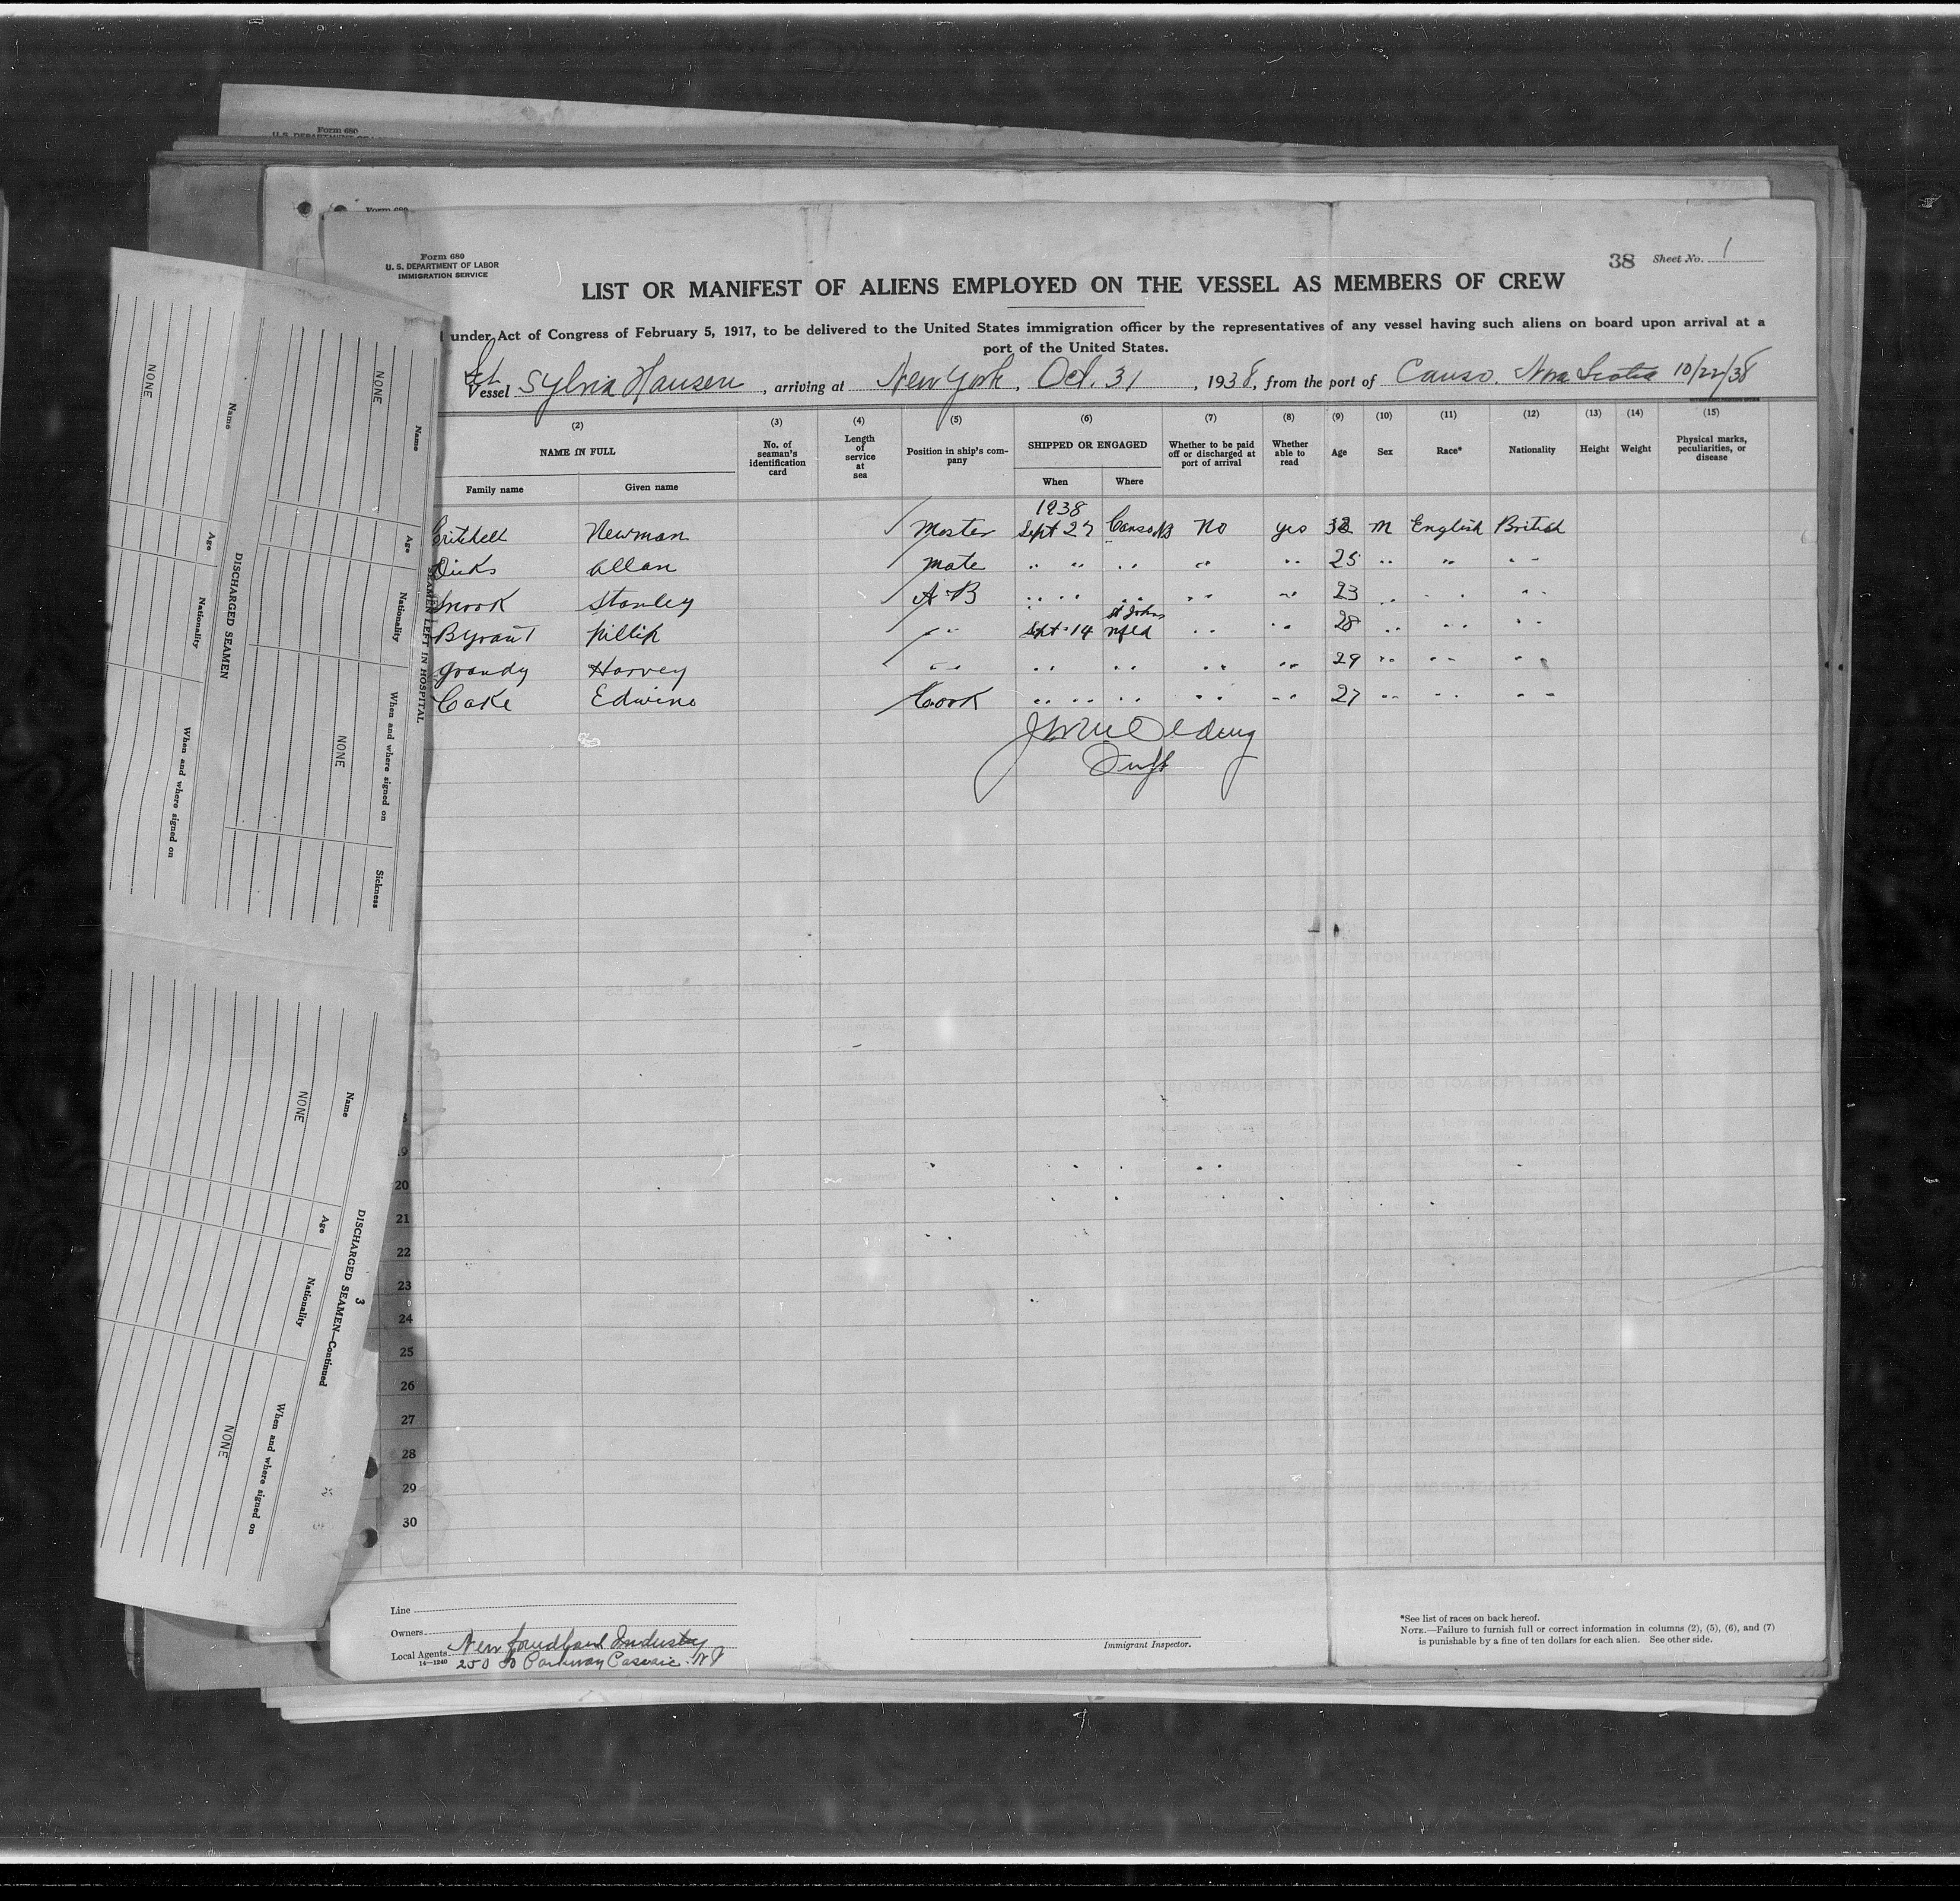 Form 680
U. S. DEPARTMENT OF LABOR
Form 680
U. S. DEPARTMENT OF LABOR
IMMIGRATION SERVICE
38 Sheet No. 1
LIST OR MANIFEST OF ALIENS EMPLOYED ON THE VESSEL AS MEMBERS OF CREW
under Act of Congress of February 5, 1917, to be delivered to the United States immigration officer by the representatives of any vessel having such aliens on board upon arrival at a
port of the United States.
Vessel Sylvia Hansen, arriving at New York, Oct. 31, 1938, from the port of Canso. Nova Scotia 10/22/38
(2) (3) (4) (5) (6) (7) (8) (9) (10) (11) (12) (13) (14) (15)
NAME IN FULL
Family name Given name
No. of seaman's identification card
Length of service at sea
Position in ship's company
SHIPPED OR ENGAGED
When Where
Whether to be paid off or discharged at port of arrival
Whether able to read
Age Sex Race* Nationality Height Weight
Physical marks, peculiarities, or disease
1938
Critchell Newman Master Sept 27 Canso NS No yes M English British
Dicks Allan Mate " " " " " " 25 " " " "
Snook Stanley A B " " " " " " " " 23 " " " " "
St Johns
Byrant Sept 14 nfld " " " " 28 " " " " "
Grandy Harvey " " " " " " " " " " 29 " " " " " "
Cake Edwin Cook " " " " " " " " " " 27 " " " " " "
19
20
21
22
23
24
25
26
27
28
29
30
Line
Owners
Local Agents Newfoundland Industry
14—1240 250 So Parkway N J
Immigrant Inspector.
*See list of races on back hereof.
NOTE.—Failure to furnish full or correct information in columns (2), (5), (6), and (7)
is punishable by a fine of ten dollars for each alien. See other side.
SEAMEN LEFT IN HOSPITAL
Name Age Nationality When and where signed on Sickness
NONE NONE
DISCHARGED SEAMEN
Name Age Nationality When and where signed on
NONE
3
DISCHARGED SEAMEN—Continued
Name Age Nationality When and where signed on
NONE NONE